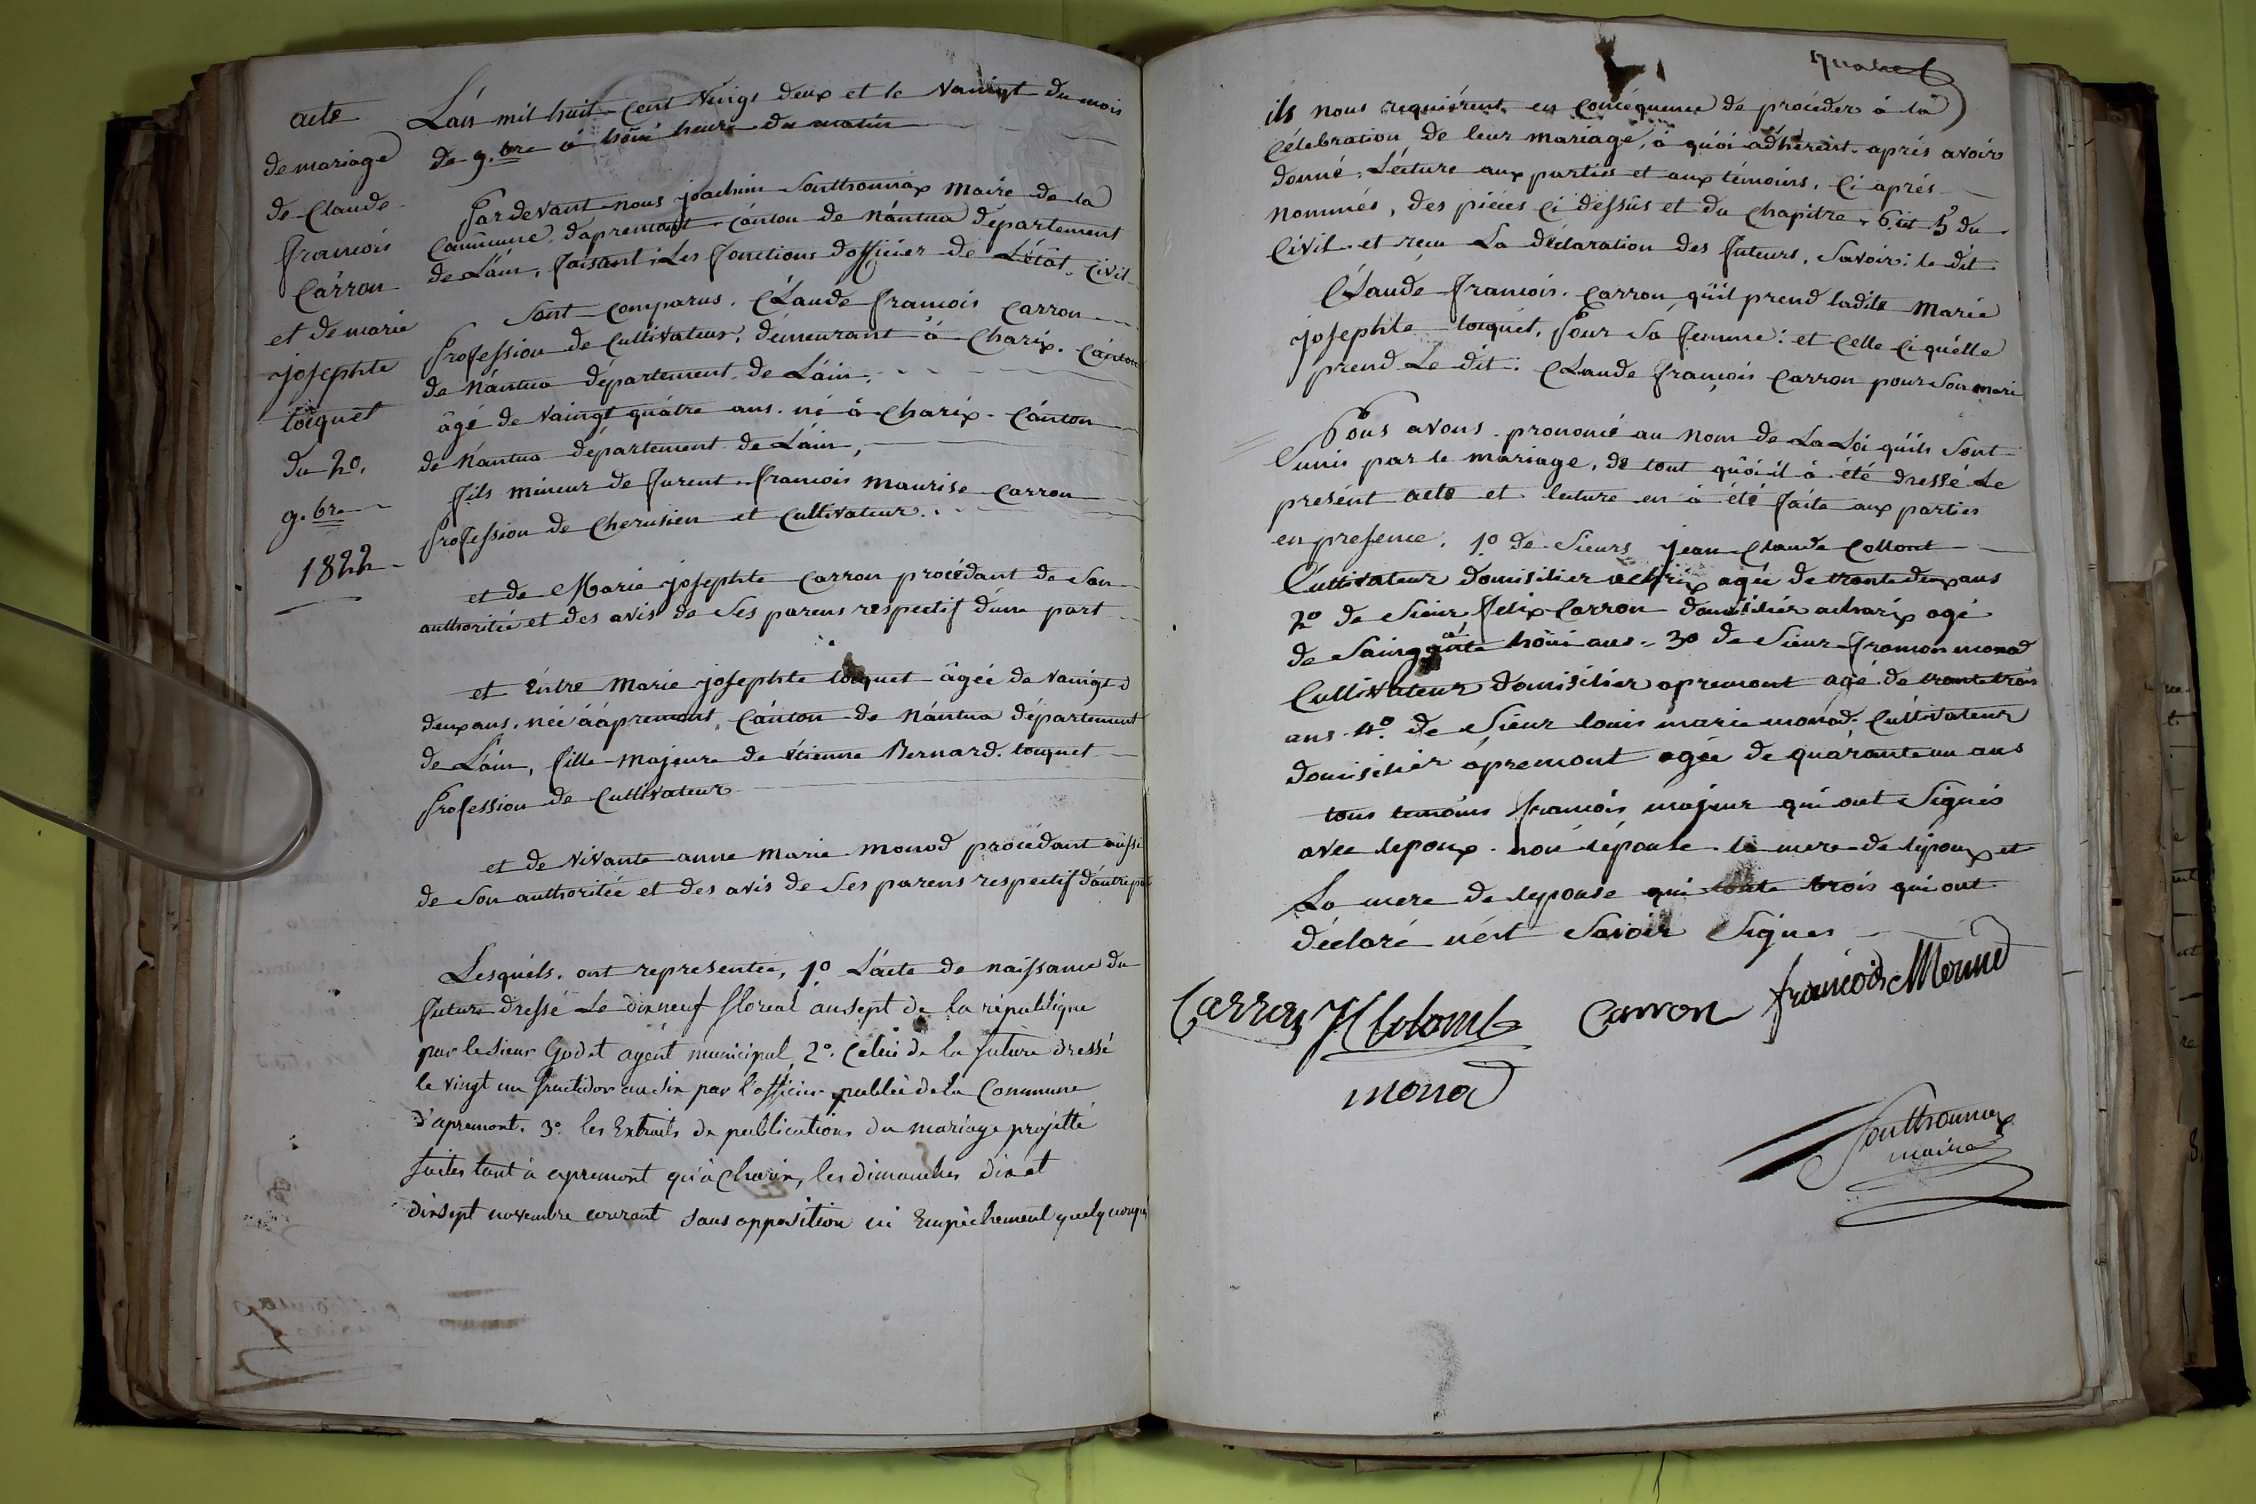 acte
de mariage
de Claude
francois
Carron
et de marie
josephte
tocquet
du 20.
9.bre
1822
L'an mil huit cent Vingt deux et le vaingt du mois
de 9.bre à hüit heure du matin
Pardevant nous joachim Sonthonnax Maire de la
Commune d'apremont canton de Nántua département
de L'ain, faisant Les fonctions d'officier de L'état Civil
Sont comparus. Claude francois Carron
Profession de Cultivateur, demeurant à Charix. Canton
de Nántua département de L'ain.
âgé de vaingt quatre ans. né à Charix Canton
de Nántua département de L'ain,
fils mineur de furent francois maurise Carron
Profession de Cherusien et Cultivateur.
et de Marie josephte Carron procédant de Son
authoritée et des avis de Ses parens respectif d'une part
et Entre Marie josephte tocquet âgée de vaingt
deux ans, née à apremont, Canton de Nántua département
de L'ain, fille Majeure de étienne Bernard. tocquet
Profession de Cultivateur
et de vivante anne Marie Monod procédant aussi
de Son authoritée et des avis de Ses parens respectif d'autre part
Lesquels. ont representée, 1º L'acte de naissance du
futur dressé Le dixneuf floreal an sept de la république
par le sieur Godet agent municipal 2º. Celui de la future dressé
le vingt un fructidor an six par l'officier public de la Commune
d'apremont. 3º. les Extraits de publications du mariage projetté
faites tant à apremont qu'à Charix, les dimanches dix et
dixsept novembre courant sans opposition ni Empêchement quelquonque
ils nous requiérent en conséquence de procéder à la
Célebration de leur mariage, à quoi adhérent aprés avoir
donné Lecture aux parties et aux témoins, Ci aprés
Nommés, des pièces Ci dessûs et du chapitre 6 tit 5 du
Civil et reçu La déclaration des futeurs, Savoir: le dit
Claude francois. Carron qu'il prend ladite Marie
josephte tocquet, Pour Sa femme: et Celle Ci qu'elle
prend Le dit: Claude françois Carron pour Son mari
Nous avons prononcé au Nom de La Loi qu'ils Sont
unis par le mariage, de tout quoi il à été dressé Le
présént acte et lecture en à été faite aux parties
en presence, 1º de Sieurs jean Claude Collont
Cultivateur domisilier achrix agée de trante deux ans
2º de Sieur felix Carron domisiliér acharix agé
de Sainquante hüit ans 3º de Sieur francois monod
Cultivateur domisilier apremont agé de trante trois
ans 4º. de Sieur louis marie monod Cultivateur
domisilier apremont agée de quarante un ans
tous temoins francois majeur qui ont Signés
avec lepoux non lépouse la mere de lepoux et
La mere de lepouse qui toute trois qui ont
déclaré nért Savoir Signer
Carron JC Colomb Carron francois Monnod
monod
Sonthonnax
maire